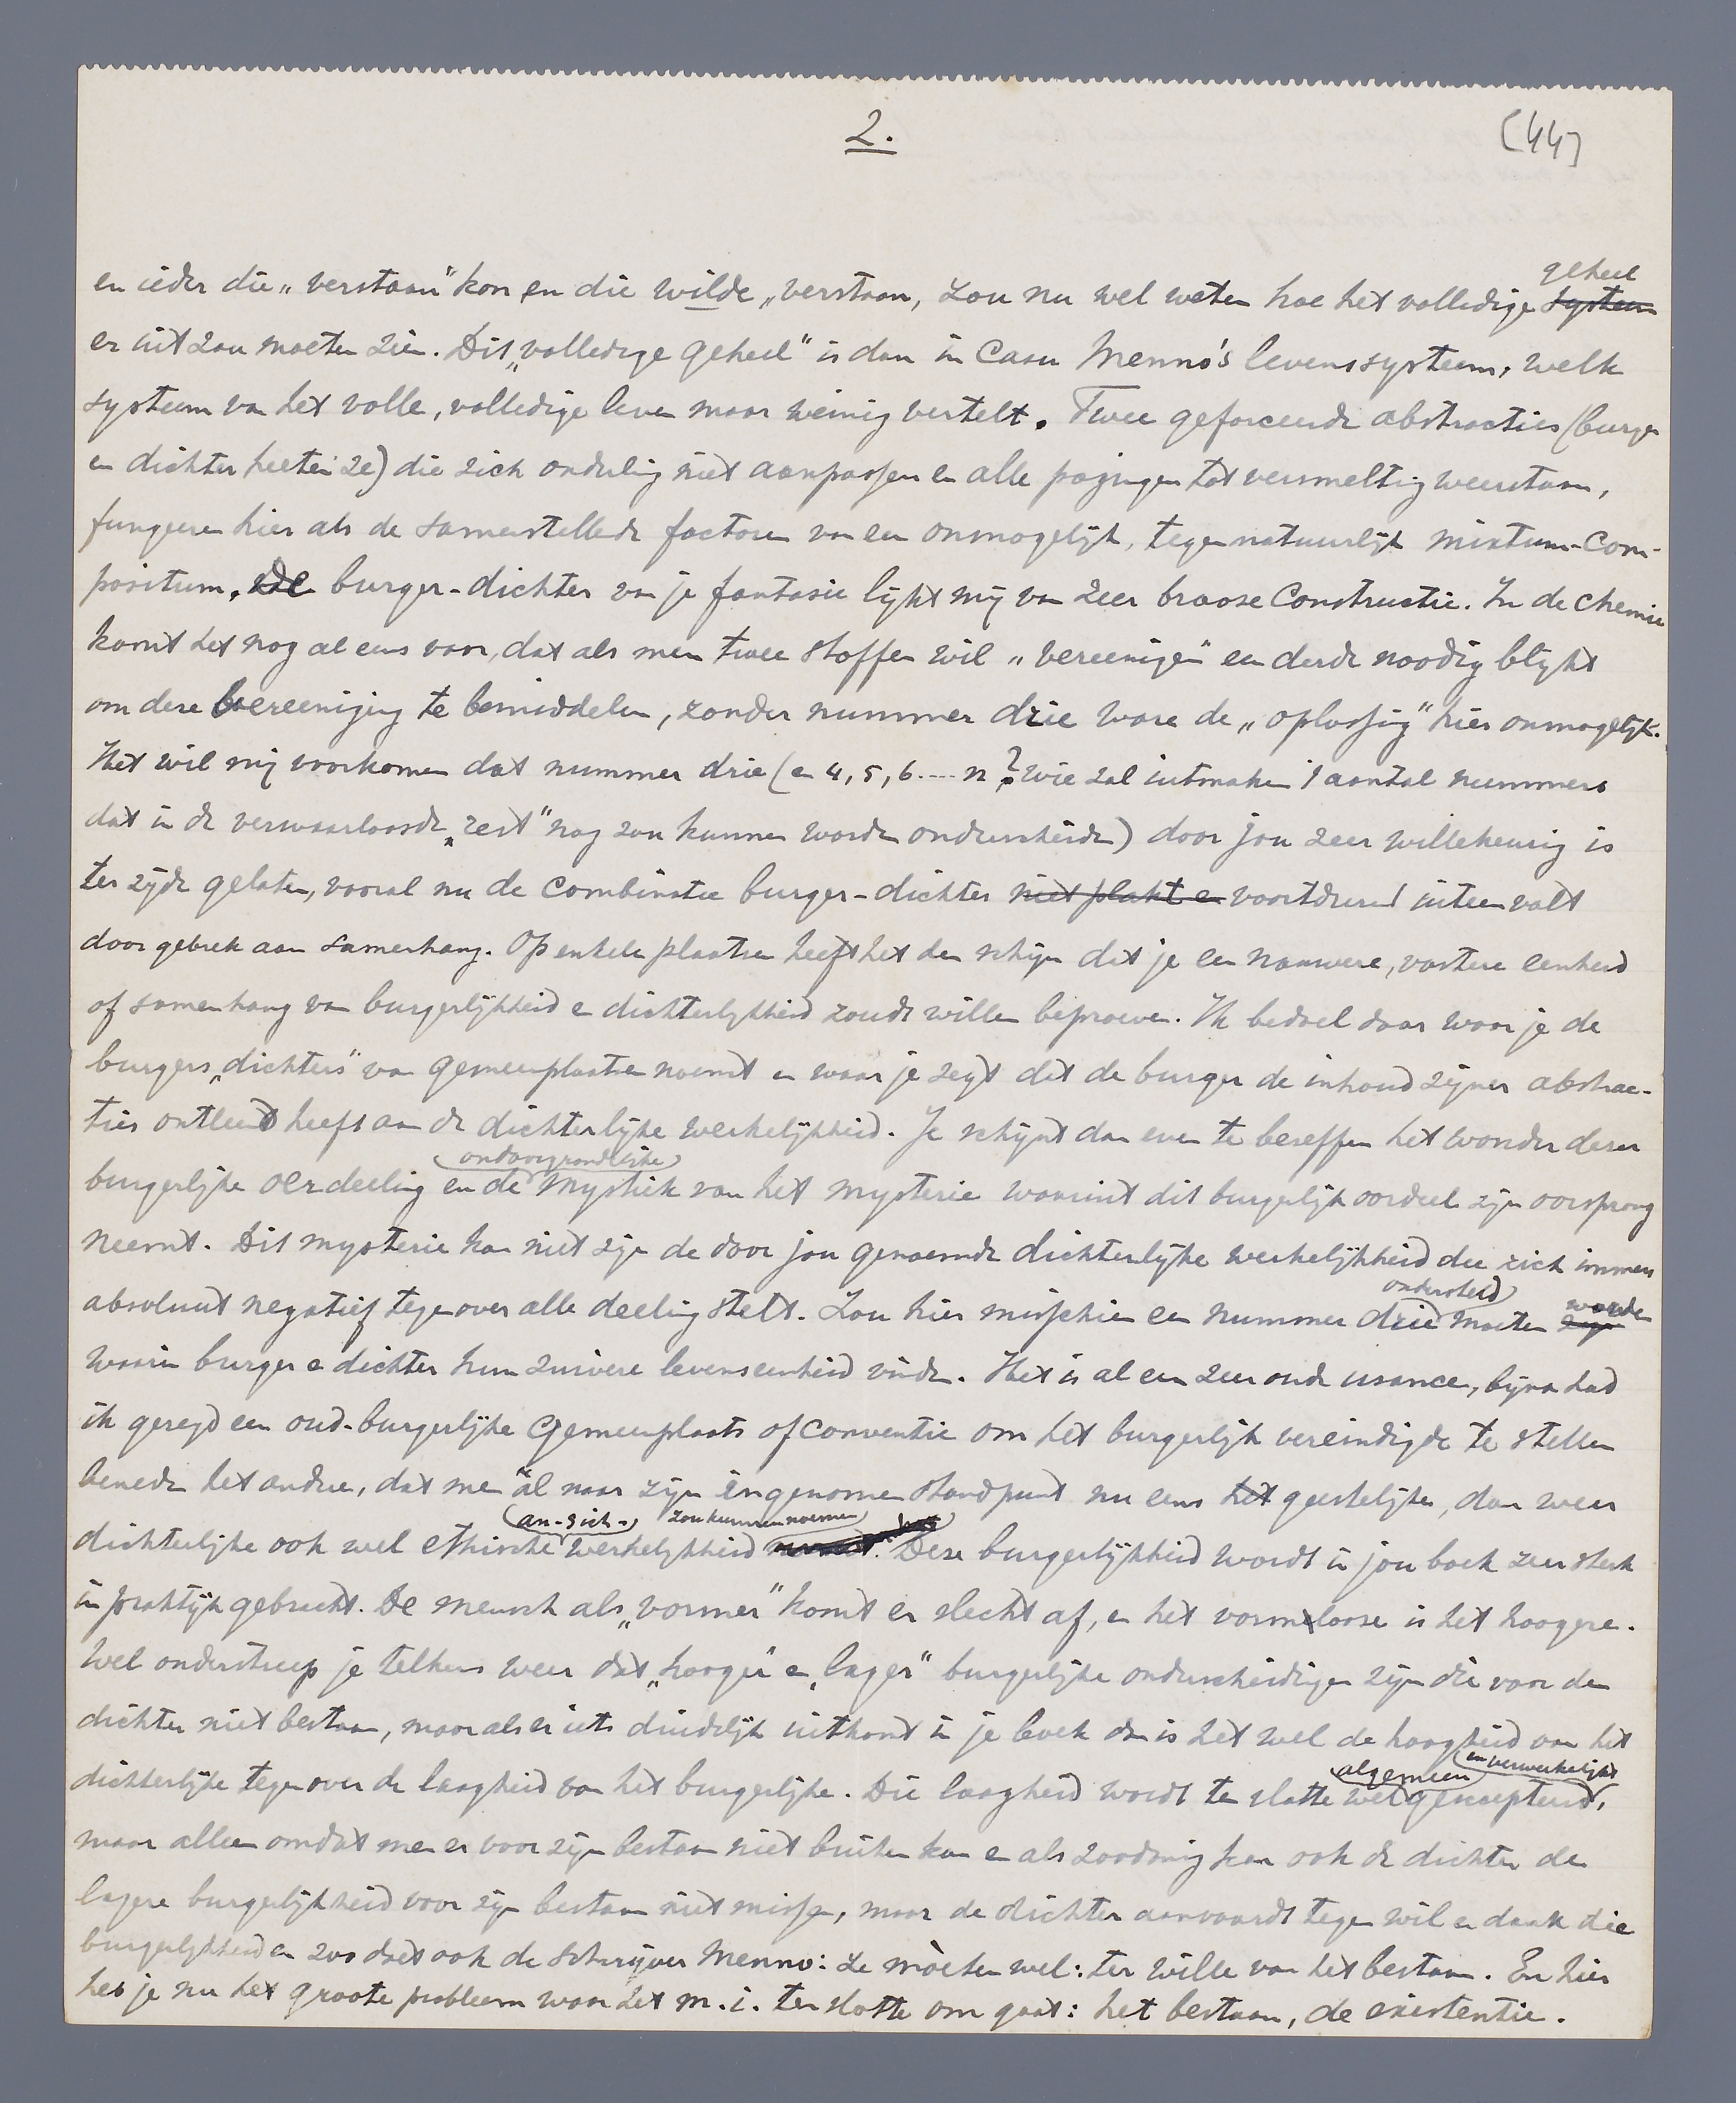 2.
(44)
en ieder die „verstaan" kon en die wilde „verstaan, zou nu wel weten hoe het volledige systeem geheel
er uit zou moeten zien. Dit „volledige geheel" is dan in casu Menno's levenssysteem, welk
systeem van het volle, volledige leven maar weinig vertelt. Twee geforceerde abstracties (burger
en dichter heeten ze) die zich onderling niet aanpassen en alle pogingen tot versmelting weerstaan,
fungeeren hier als de samenstellende factoren van een onmogelijk, tegennatuurlijk mixtum-com-
positum. De burger-dichter van je fantasie lijkt mij van zeer brooze constructie. In de chemie
komt het nog al eens voor, dat als men twee stoffen wil „vereenigen" een derde noodig blijkt
om deze vereeniging te bemiddelen, zonder nummer drie ware de „oplossing" hier onmogelijk.
Het wil mij voorkomen dat nummer drie (en 4, 5, 6 .... n? wie zal uitmaken 't aantal nummers
dat in de verwaarloosde „rest" nog zou kunnen worden onderscheiden) door jou zeer willekeurig is
ter zijde gelaten, vooral nu de combinatie burger-dichter niet plakt en voortdurend uiteen valt
door gebrek aan samenhang. Op enkele plaatsen heeft het den schijn dat je een nauwere, vastere eenheid
of samenhang van burgerlijkheid en dichterlijkheid zoudt willen beproeven. Ik bedoel daar waar je de
burgers „dichters" van gemeenplaatsen noemt en waar je zegt dat de burger de inhoud zijner abstrac-
ties ontleend heeft aan de dichterlijke werkelijkheid. Je schijnt dan even te beseffen het wonder dezer
burgerlijke oerdeeling en de (ondoorgrondelijke) mystiek van het mysterie waaruit dit burgerlijk oordeel zijn oorsprong
neemt. Dit mysterie kan niet zijn de door jou genoemde dichterlijke werkelijkheid die zich immers
absoluut negatief tegenover alle deeling stelt. Zou hier misschien een nummer drie (ondersteld) moeten zijn worden
waarin burger en dichter hun zuivere levenseenheid vinden. Het is al een zeer oude usance, bijna had
ik gezegd een oud-burgerlijke gemeenplaats of conventie om het burgerlijk vereindigde te stellen
beneden het andere, dat men al naar zijn ingenomen standpunt nu eens het geestelijke, dan weer
dichterlijke ook wel ethische (an-sich-) werkelijkheid zou kunnen noemen. Deze burgerlijkheid wordt in jou boek zeer sterk
in praktijk gebracht. De mensch als „vormer" komt er slecht af, en het vormelooze is het hoogere.
Wel onderstreep je telkens weer dat „hooger" en „lager" burgerlijke onderscheidingen zijn die voor den
dichter niet bestaan, maar als er iets duidelijk uitkomt in je boek dan is het wel de hoogheid van het
dichterlijke tegenover de laagheid van het burgerlijke. Die laagheid wordt ten slotte wel (algemeen) geaccepteerd (en verwerkelijkt),
maar alleen omdat men er voor zijn bestaan niet buiten kan en als zoodanig kan ook de dichter de
lagere burgerlijkheid voor zijn bestaan niet missen, maar de dichter aanvaardt tegen wil en dank die
burgerlijkheid en zoo doet ook de Schrijver Menno: ze mòeten wel: ter wille van het bestaan. En hier
heb je nu het groote probleem waar het m.i. ten slotte om gaat: het bestaan, de existentie.